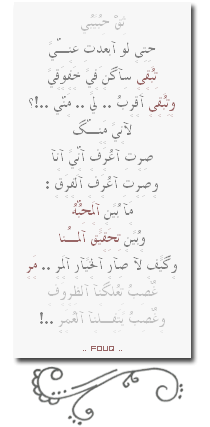 ثق حبيبي
حتى لو أبعدت عني
تبقى ساكن في خفوقي
وتبقى أقرب .. لي .. مني ..!؟
لأني منك
صرت أعرف أني أنا
وصرت أعرف الفرق :
ما بين المحبه
وبين تحقيق المنا
وكيف لا صار الخيار المر .. مر
غصب تهلكنا الظروف
وغصب ينقلنا العمر ..!
.. FOUQ ..